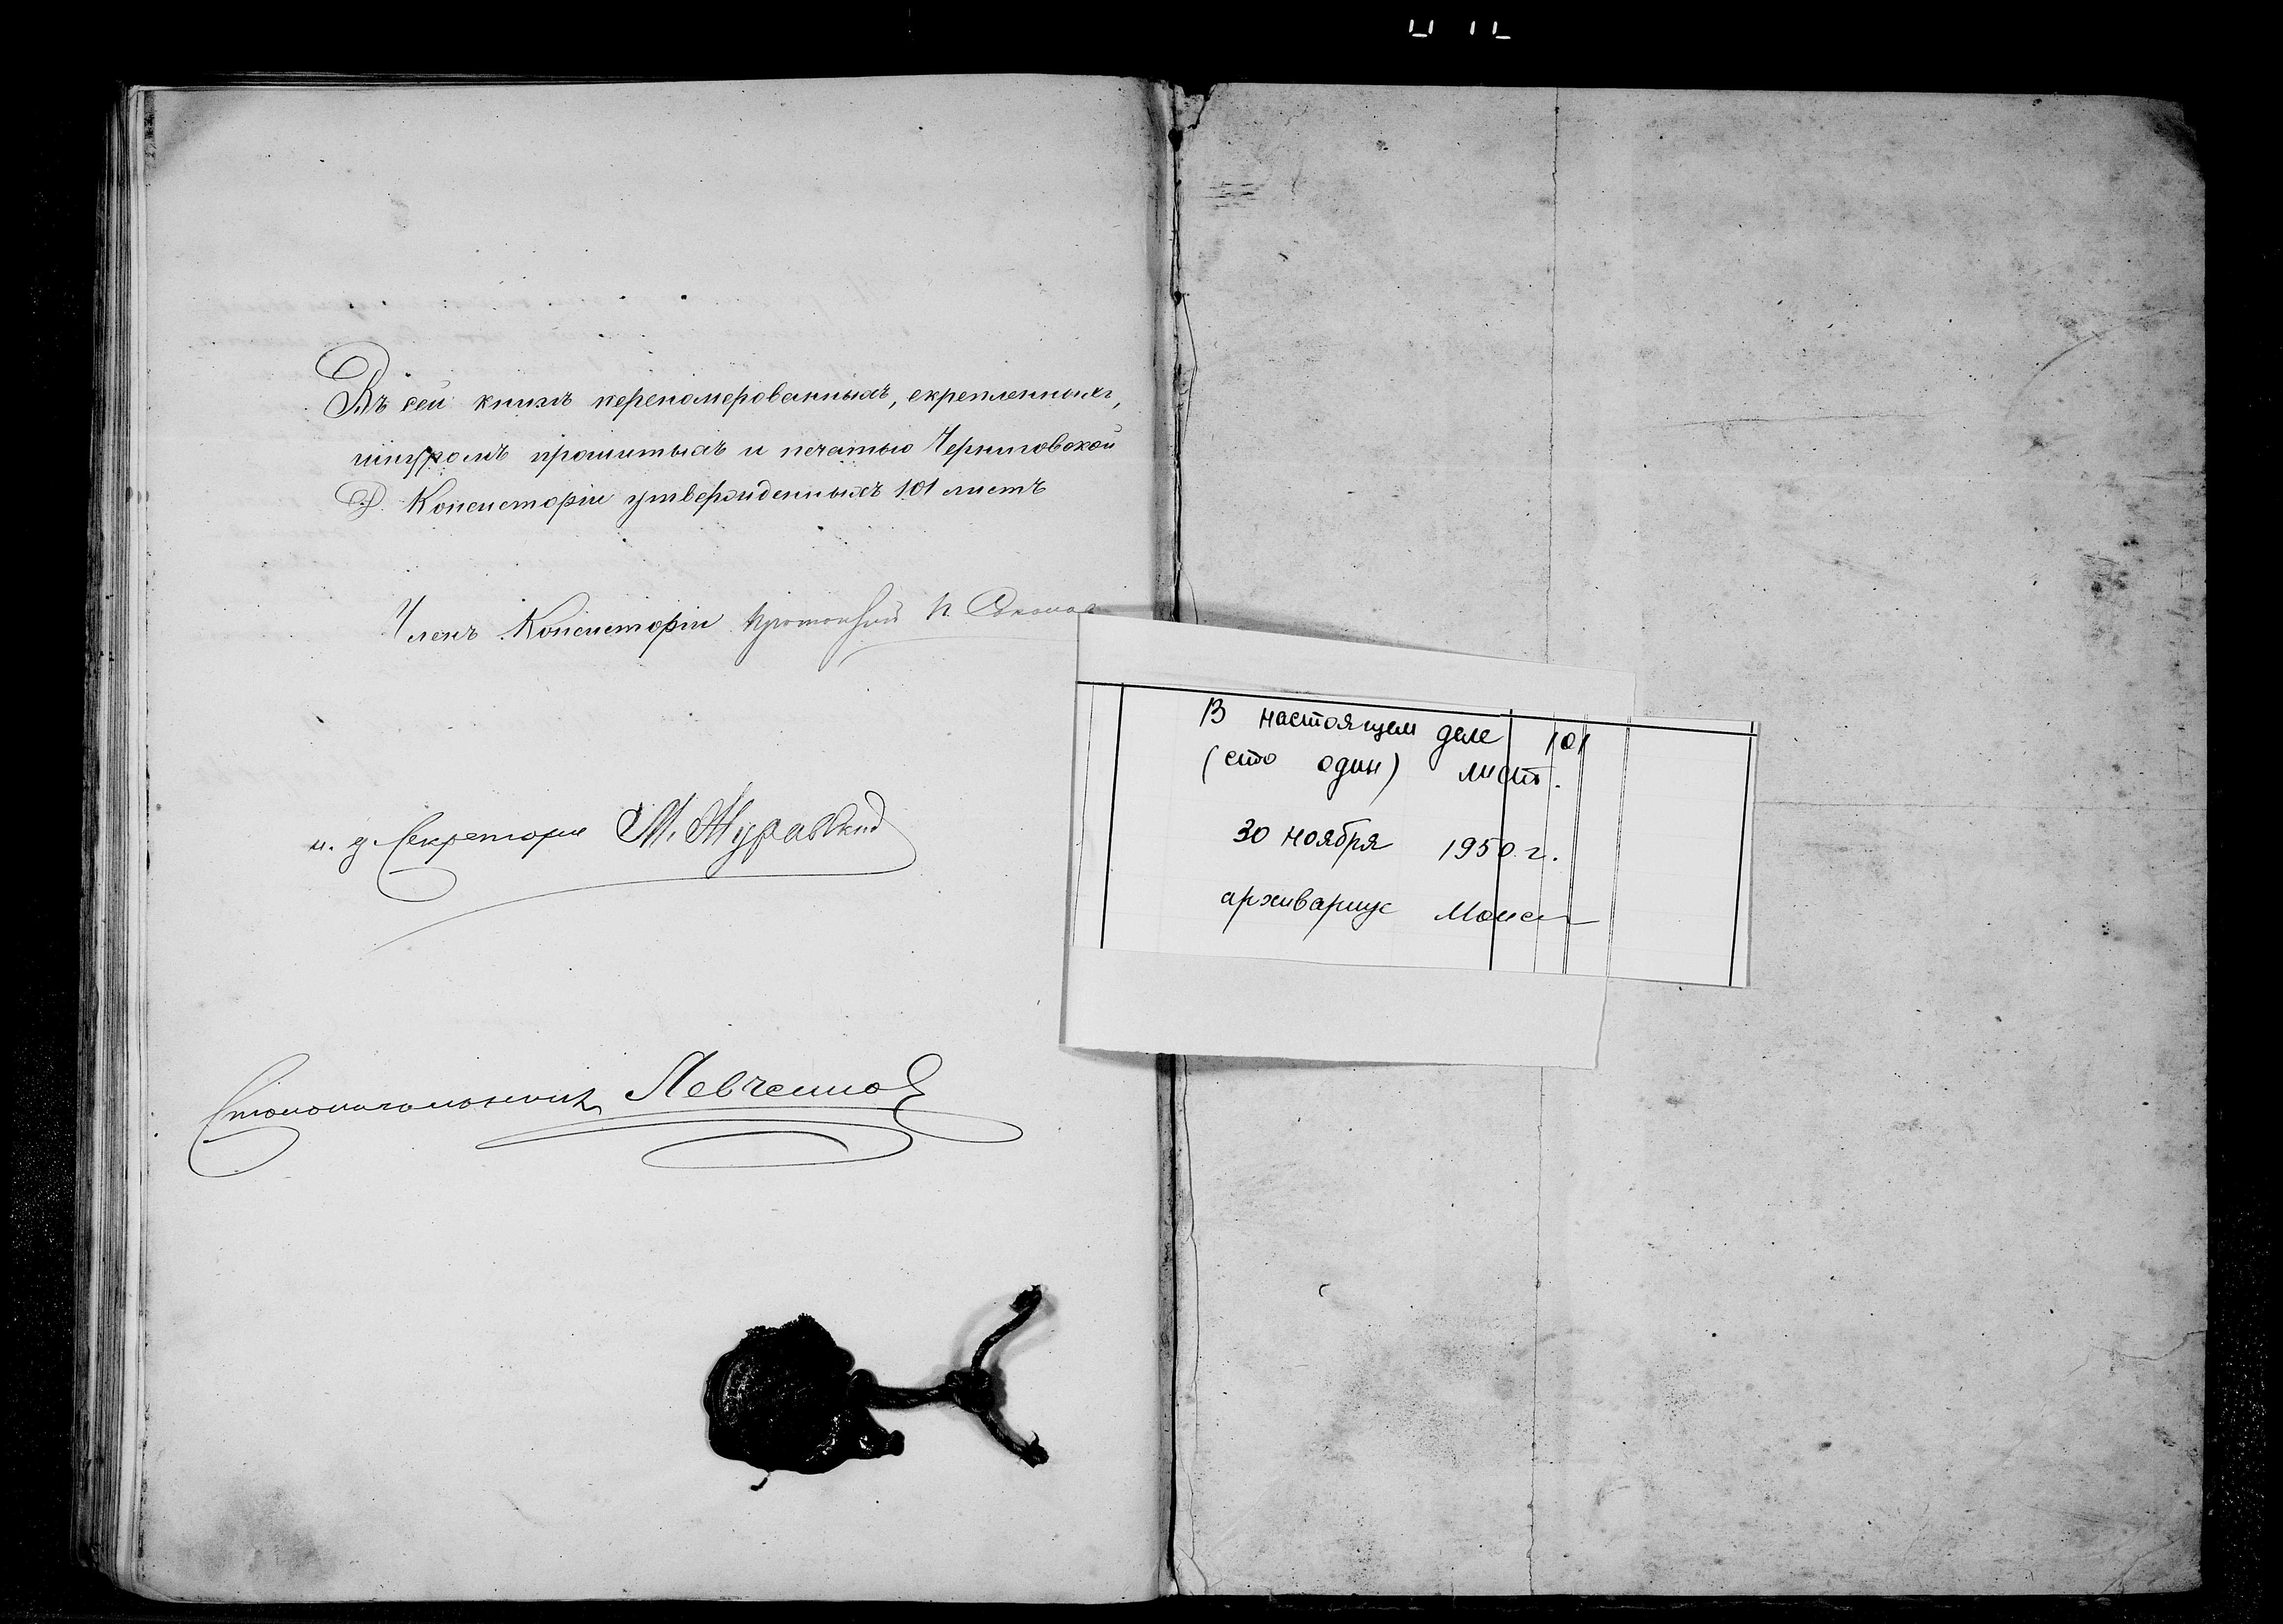 Въ сей книгѣ перенумерованныхъ, скрепленныхъ,
шнуромъ прошитыхъ и печатью Черниговской
Д. Консисторіи утвержденныхъ 101 листъ
Членъ Консисторіи Протоіерей П.
и. д. Секретаря М. Журавский
Столоначальникъ Левченко
В настоящем деле 101
(сто один) лист.
30 ноября 1950 г.
архивариус